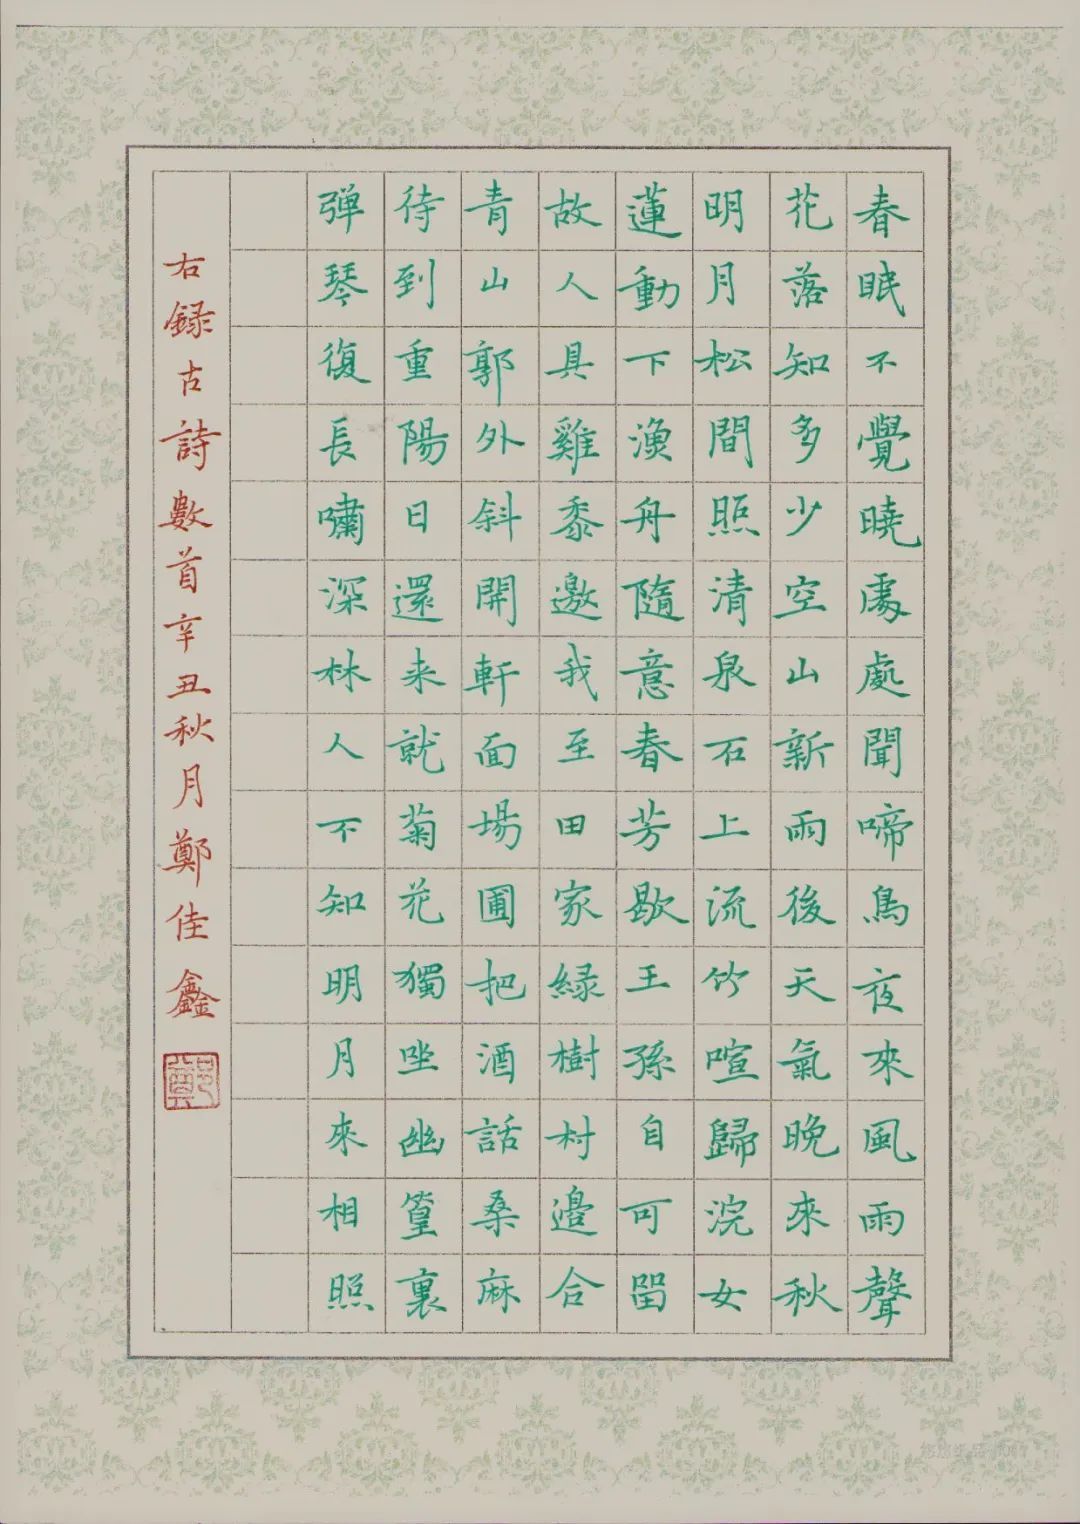 春眠不覺曉處處聞啼鳥夜來風雨聲
花落知多少空山新雨後天氣晚來秋
明月松間照清泉石上流竹喧歸浣女
蓮動下漁舟隨意春芳歇王孫自可留
故人具雞黍邀我至田家綠樹村邊合
青山郭外斜開軒面場圃把酒話桑麻
待到重陽日還来就菊花獨坐幽篁裏
弹琴復長嘯深林人不知明月來相照
右録古詩數首辛丑秋月鄭佳鑫
鄭